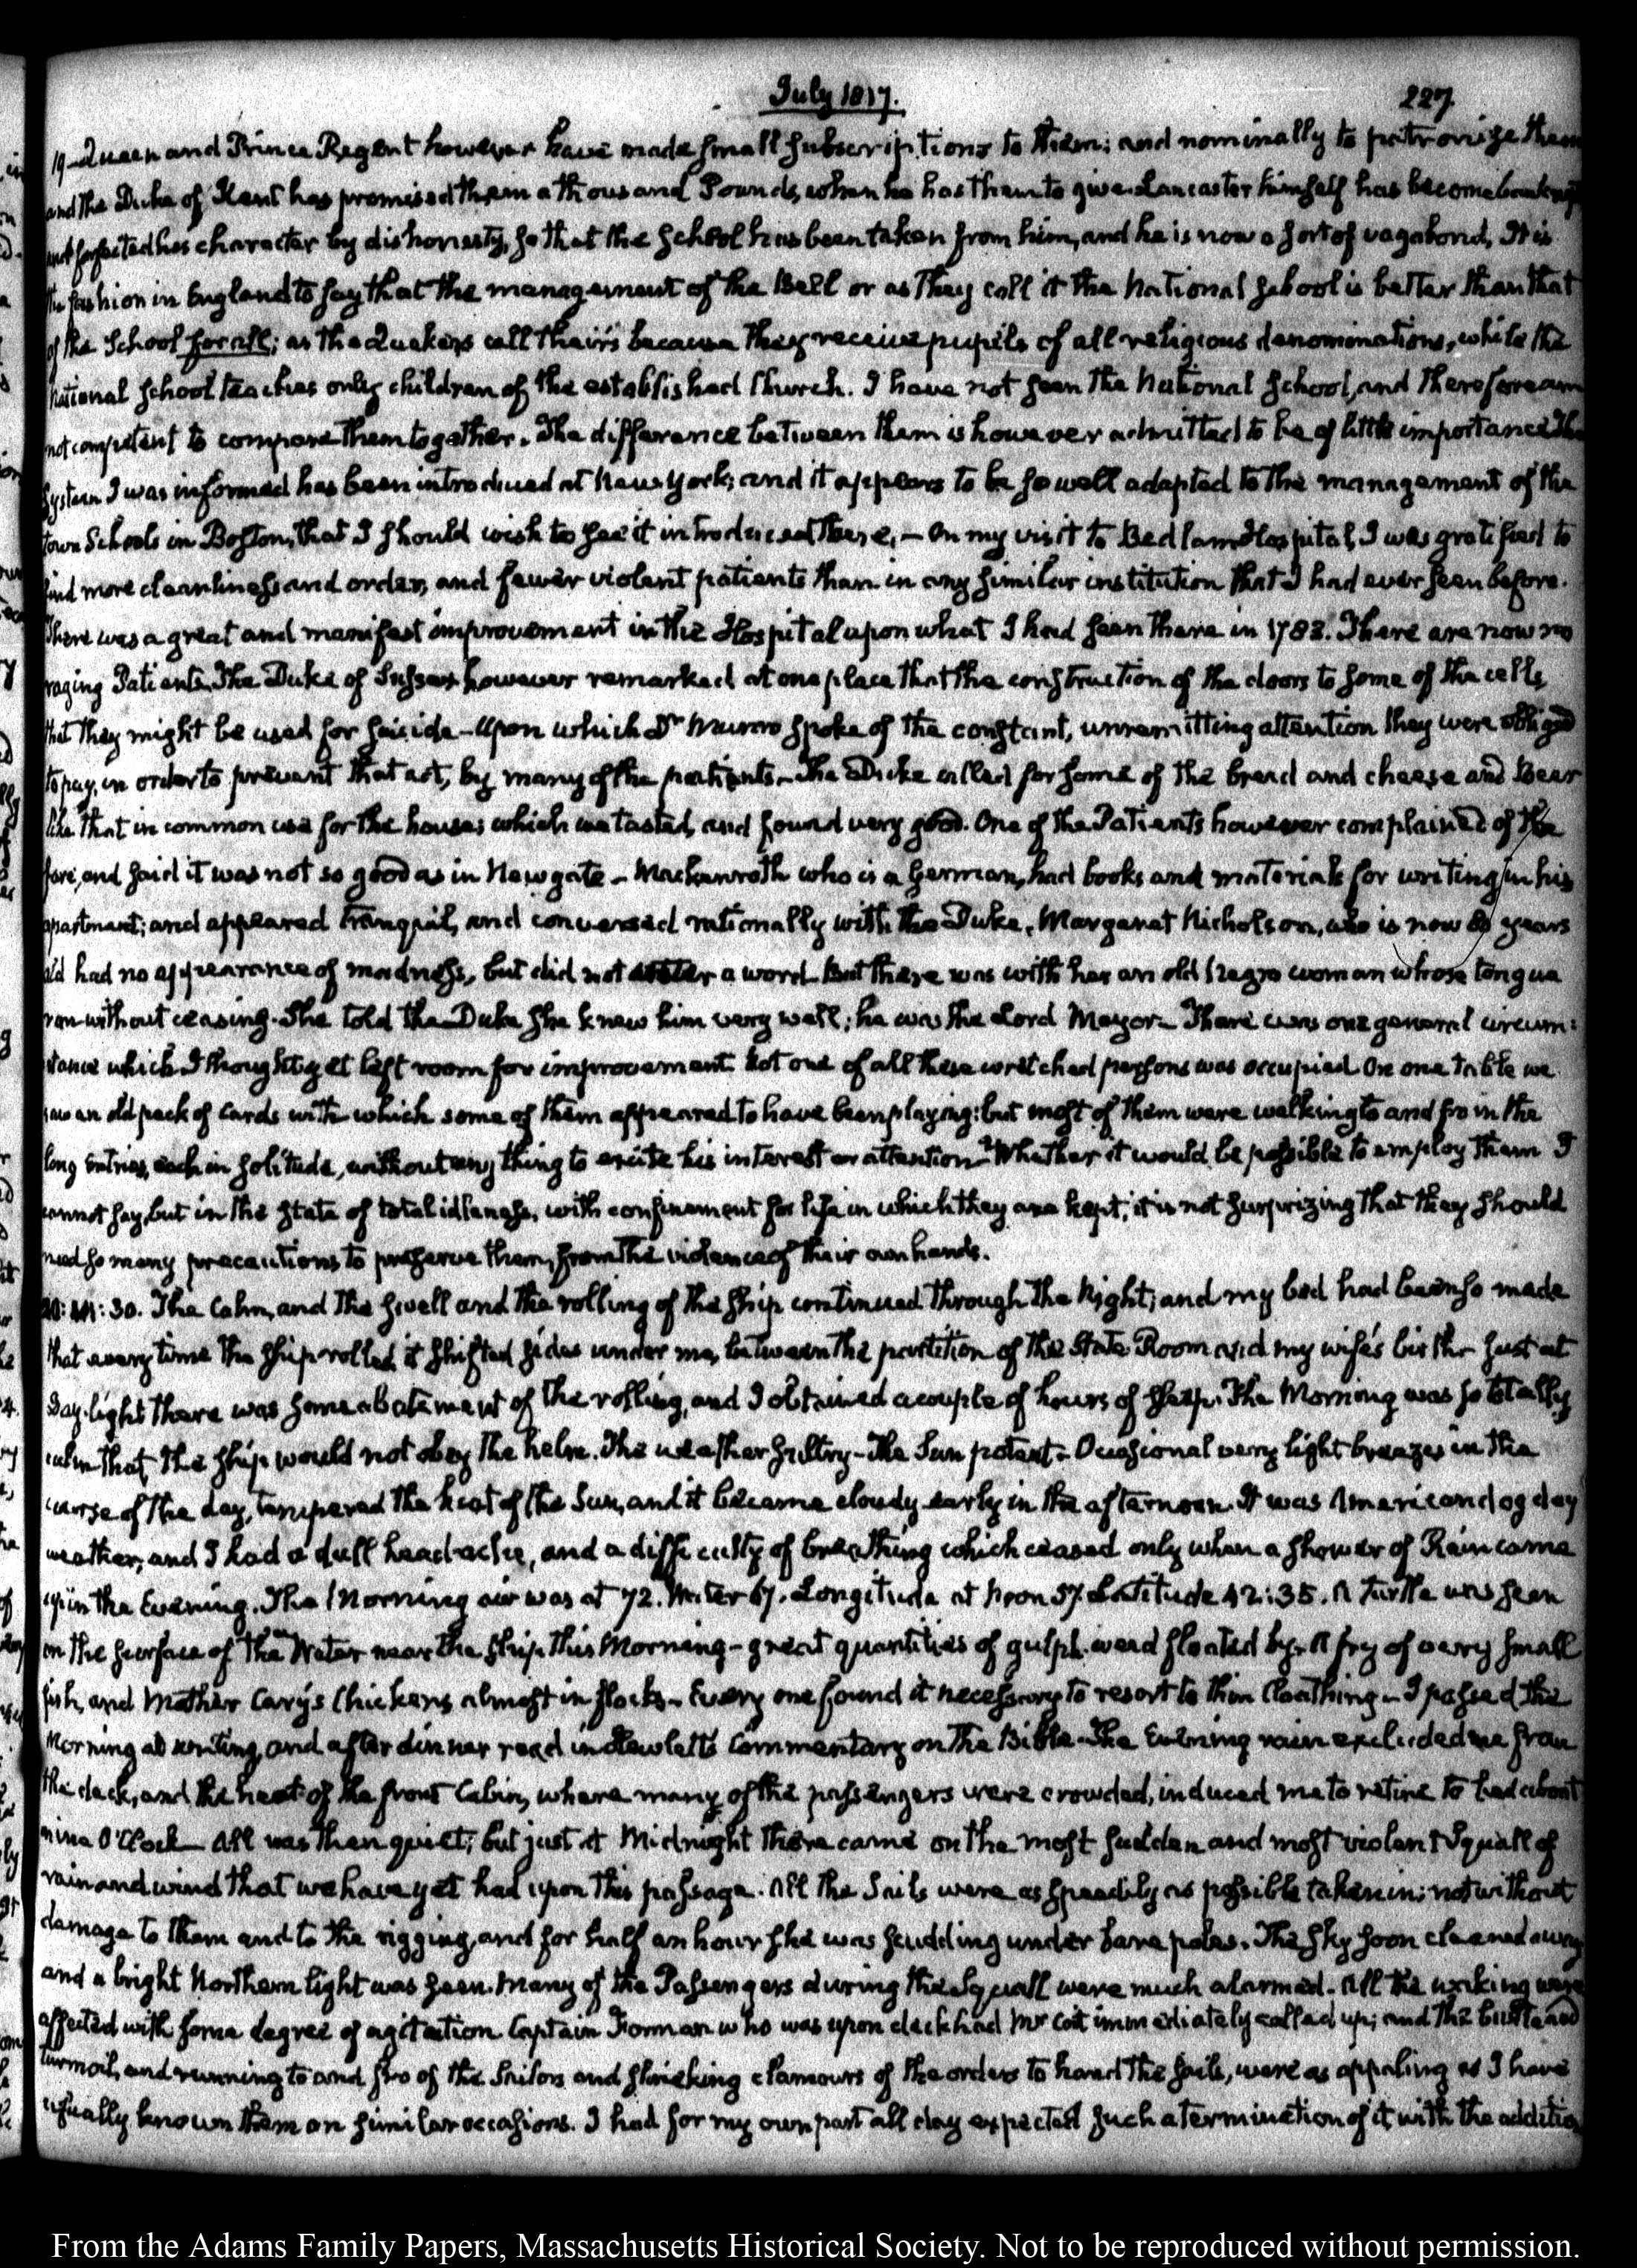 July 1817. 227.
19—Queen and Prince Regent however have made small subscriptions to them; and nominally to patronize them
and the Duke of Kent has promised them a thousand Pounds, when he has them to give. Lancaster himself has become bankrupt
and forfeited his character by dishonesty, so that the School has been taken from him, and he is now a sort of vagabond. It is
the fashion in England to say that the management of the Bell or as they call it the National School is better than that
of the School for all; as the Quakers call their's because they receive pupils of all religious denominations, while the
National School teaches only children of the established Church. I have not seen the National School, and therefore am
not competent to compare them together. The difference between them is however admitted to be of little importance. The
System I was informed has been introduced at New York; and it appears to be so well adapted to the management of the
town Schools in Boston, that I should wish to see it introduced there.— On my visit to Bedlam Hospital, I was gratified to
find more cleanliness and order, and fewer violent patients than in any similar institution that I had ever seen before.
There was a great and manifest improvement in the Hospital upon what I had seen there in 1783. There are now no
raging Patients. The Duke of Sussex however remarked at one place that the construction of the doors to some of the cells,
that they might be used for suicide—Upon which Dr Munro spoke of the constant, unremitting attention they were obliged
to pay, in order to prevent that act, by many of the patients—The Duke called for some of the bread and cheese and Beer
like that in common use for the house; which we tasted, and found very good. One of the Patients however complained of the
fare, and said it was not so good as in Newgate—Mackanroth who is a German, had books and materials for writing in his
apartment; and appeared tranquil, and conversed rationally with the Duke. Margaret Nicholson, who is now 80 years
old had no appearance of madness, but did not utter a word—But there was with her an old Negro woman whose tongue
ran without ceasing. She told the Duke she knew him very well; he was the Lord Mayor—There was one general circum=
stance which I thought yet left room for improvement. Not one of all these wretched persons was occupied. On one table we
saw an old pack of Cards with which some of them appeared to have been playing: but most of them were walking to and fro in the
long entries, each in solitude, without any thing to excite his interest or attention—Whether it would be possible to employ them I
cannot say, but in the state of total idleness, with confinement for life in which they are kept, it is not surprizing that they should
need so many precautions to preserve them, from the violence of their own hands.
20: 30. The Calm, and the swell and the rolling of the ship continued through the Night; and my bed had been so made
that every time the ship rolled it shifted sides under me, between the partition of the State Room and my wife's birth. Just at
Day-light there was some abatement of the rolling, and I obtained a couple of hours of sleep. The Morning was so totally
calm that the ship would not obey the helm. The weather sultry—The Sun potent—Occasional very light breezes in the
course of the day, tempered the heat of the Sun, and it became cloudy early in the afternoon. It was American dog day
weather, and I had a dull head-ache, and a difficulty of breathing which ceased only when a shower of Rain came
up in the Evening. The Morning air was at 72. Water 67. Longitude at Noon 57. Latitude 42:35. A Turtle was seen
on the surface of the Water near the ship this Morning—great quantities of gulph-weed floated by. A fry of very small
fish, and Mother Cary's Chickens almost in flocks—Every one found it necessary to resort to thin Cloathing—I passed the
Morning at writing, and after dinner read in Hewlett's Commentary on the Bible. The Evening rain excluded me from
the deck, and the heat of the front Cabin, where many of the passengers were crowded, induced me to retire to bed about
nine O'Clock—All was then quiet; but just at Midnight there came on the most sudden and most violent Squall of
rain and wind that we have yet had upon this passage. All the Sails were as speedily as possible taken in; not without
damage to them and to the rigging, and for half an hour she was scudding under bare poles. The sky soon cleared away
and a bright Northern light was seen. Many of the Passengers during the Squall were much alarmed. All the waking were
affected with some degree of agitation. Captain Forman who was upon deck had Mr Coit immediately called up; and the bustle and
turmoil, and running to and fro of the Sailors and shrieking clamours of the orders to hand the sails, were as appaling as I have
usually known them on similar occasions. I had for my own part all day expected such a termination of it, with the addition
From the Adams Family Papers, Massachusetts Historical Society. Not to be reproduced without permission.